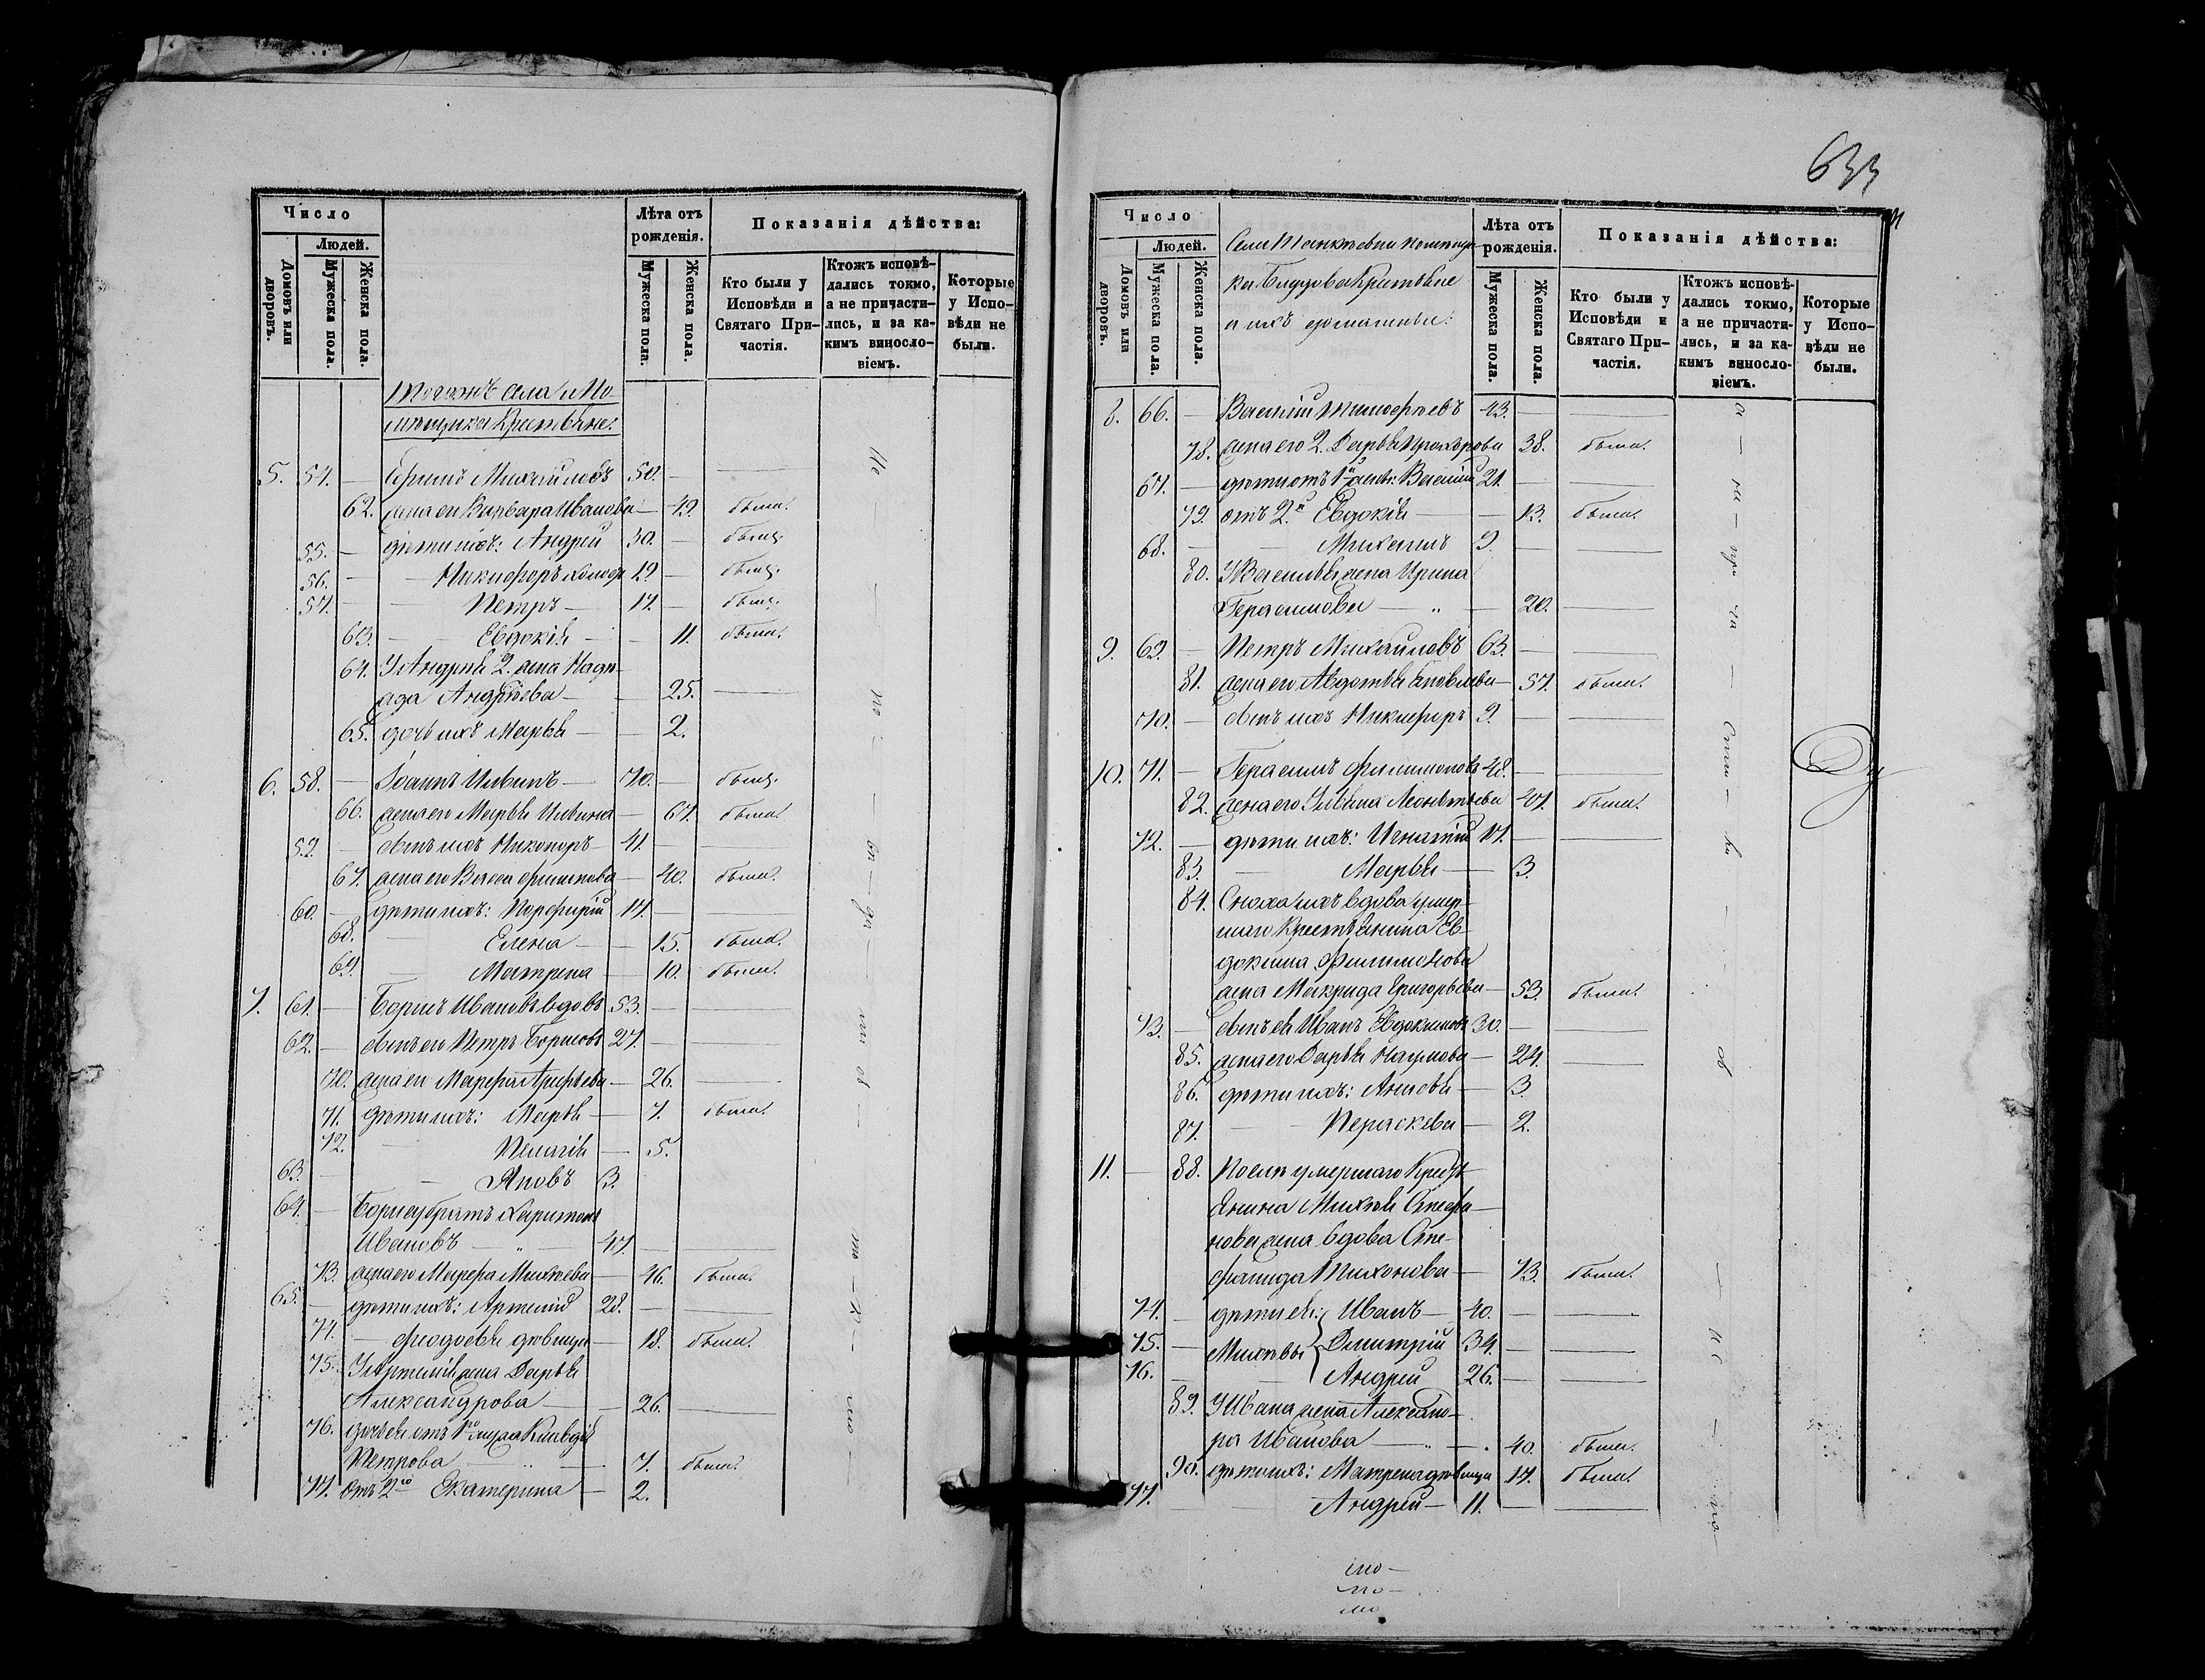 Число
Людей.
Домовъ или дворовъ.
Мужеска пола.
Женска пола.
Лѣта отъ рожденія.
Мужеска пола.
Женска пола.
Показанія дѣйства:
Кто были у Исповѣди и Святаго Причастія.
Ктожъ исповѣдались токмо, а не причастились, и за какимъ винословіемъ.
Которые у Исповѣди не были.
Тогожъ села и По
мѣщика Крестьяне:
5. 54. — Михайловъ 50. —
62. жена ея Варвара Иванова — 49. была.
55. — дѣти ихъ: Андрей 30. — былъ.
56. — Никифоръ 19 — былъ.
57. — Петръ — 17. — былъ.
63. — Евдокія — 11. была.
64. У Андрея 2. жена Надѣ
жда Андрѣева — 25. —
65. дочь ихъ Марья — 2.
6. 58. — Іоаннъ Ильинъ — 70. — былъ.
66. жена его Марья Ильина — 67. была.
59. — сынъ ихъ Никоноръ — 41. —
67. жена его Васса Филипова — 40. была.
60. — дѣти ихъ: Порфирій 17. —
68. — Елена — 15. была.
69. — Матрена — 10. была.
7. 61. — Борисъ Ивановъ вдовъ 53. —
62. — сынъ его Петръ Борисовъ 27. —
70. жена его Марфа Арефьева — 26. —
71. дѣти ихъ: Марья — 7. была.
72. — Пелагія — 5.
63. — Яковъ 3.
64. — Борису братъ Харитонъ
Ивановъ — 47. —
73. жена его Марфа Михѣева — 46. была.
65. — дѣти ихъ: Артемій 28. —
74. — Феодосья дѣвица — 18. была.
75. У Артемія жена Дарья
Александрова — 26. —
76. дочь ея отъ 1го мужа Клавдія
Петрова — 7. была.
77. отъ 2го Екатерина — 2.
633
Число
Людей.
Домовъ или дворовъ.
Мужеска пола.
Женска пола.
Села помѣщи
ка Блудова Крестьяне
и ихъ домашніе:
Лѣта отъ рожденія.
Мужеска пола.
Женска пола.
Показанія дѣйства:
Кто были у Исповѣди и Святаго Причастія.
Ктожъ исповѣдались токмо, а не причастились, и за какимъ винословіемъ.
Которые у Исповѣди не были.
8. 66. — Василій Тимофѣевъ 43. —
78. жена его 2. Дарья Прохорова 38. была.
67. — дѣти отъ 1й жены: Василій 21. —
79. отъ 2й Евдокія — 13. была.
68. — Михаилъ 9. —
80. У Василья жена Ирина
Герасимова — 20. —
9. 69. — Петръ Михайловъ 63. —
81. жена его Авдотья Яковлева — 57. была.
70. — сынъ ихъ Никифоръ 9. —
10. 71. — Герасимъ Филимоновъ 48. —
82. жена его Ульяна Леонтьева 47. была.
72. — дѣти ихъ: Игнатій 17. —
83. — Марья — 3.
84. Сноха ихъ вдова умер
шаго Крестьянина Ев
докима Филимонова
жена Макрида Григорьева — 53. была.
73. — сынъ ея Иванъ Евдокимовъ 30. —
85. жена его Дарья Наумова — 24. —
86. дѣти ихъ: — 3
87. — Параскева — 2.
11. — 88. Послѣ умершаго Кресть
янина Михѣя Стефа
нова жена вдова Сте
фанида Тихонова — 73. была.
74. — дѣти ея: Иванъ — 40. —
75. — Михѣевы Димитрій 34. —
76. — Андрей 26. —
89. У Ивана жена Александ
ра Иванова — 40. была.
90. дѣти ихъ: Матрена дѣвица 17. была.
77. — Андрей — 11. —